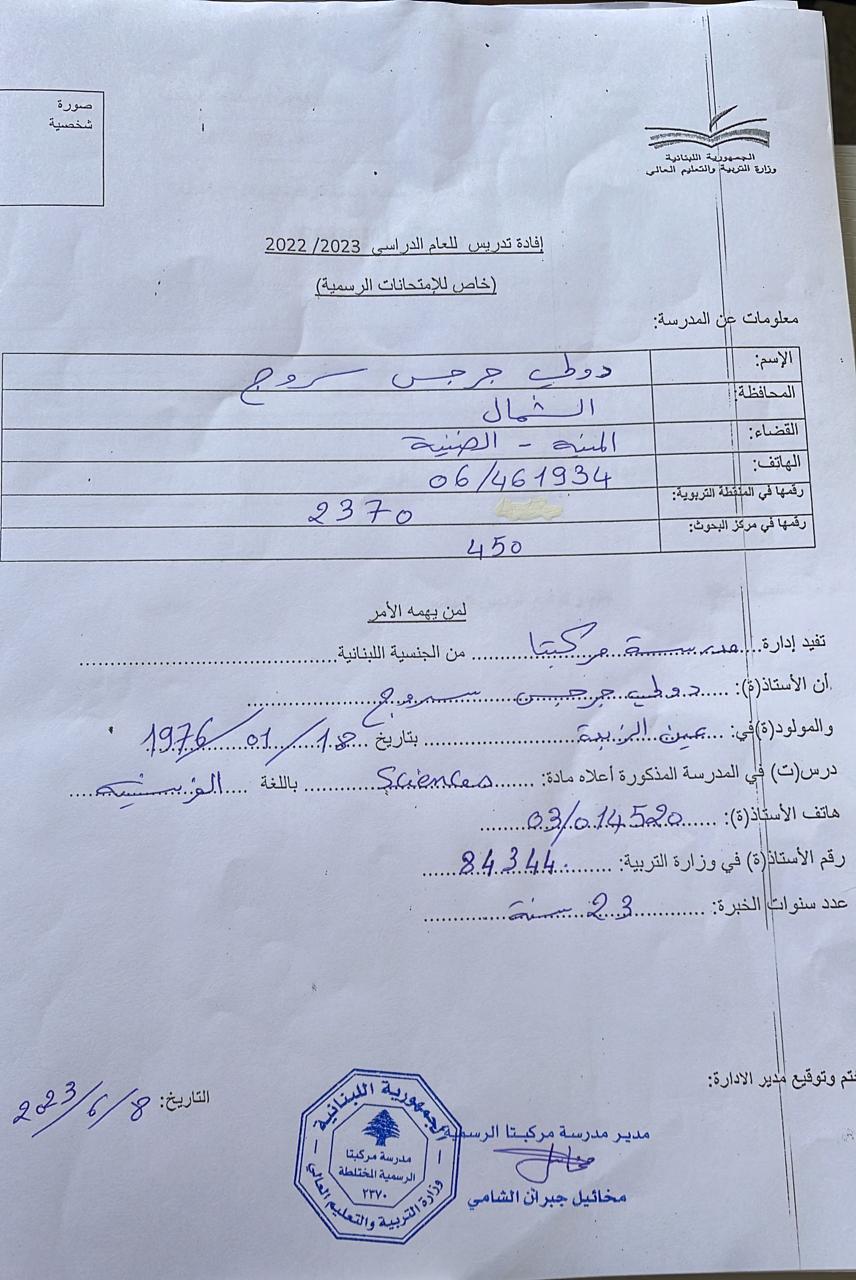 صورة
شخصية
الجمهورية اللبنانية
وزارة التربية والتعليم العالي
إفادة تدريس للعام الدراسي 2023/ 2022
(خاص للإمتحانات الرسمية)
معلومات عن المدرسة:
الإسم: دوطي جرجس سروج
المحافظة: الشمال
القضاء: المنيه - الضنية
الهاتف: 06/461934
رقمها في المنطقة التربوية: 2370
رقمها في مركز البحوث: 450
لمن يهمه الأمر
تفيد إدارة مدرسة مركبتا من الجنسية اللبنانية
أن الأستاذ(ة): دوطي جرجس سروج
والمولود(ة)في: عين الزيبة بتاريخ 18/01/1976
درس(ت) في المدرسة المذكورة أعلاه مادة: Sciences باللغة الفرنسية
هاتف الأستاذ(ة): 03/014520
رقم الأستاذ(ة) في وزارة التربية: 84344
عدد سنوات الخبرة: 23 سنة
ختم وتوقيع مدير الادارة:
التاريخ: 8/6/2023
مدير مدرسة مركبتا الرسمية
مخائيل جبران الشامي
الجمهورية اللبنانية
مدرسة مركبتا
الرسمية المختلطة
٢٣٧٠
وزارة التربية والتعليم العالي